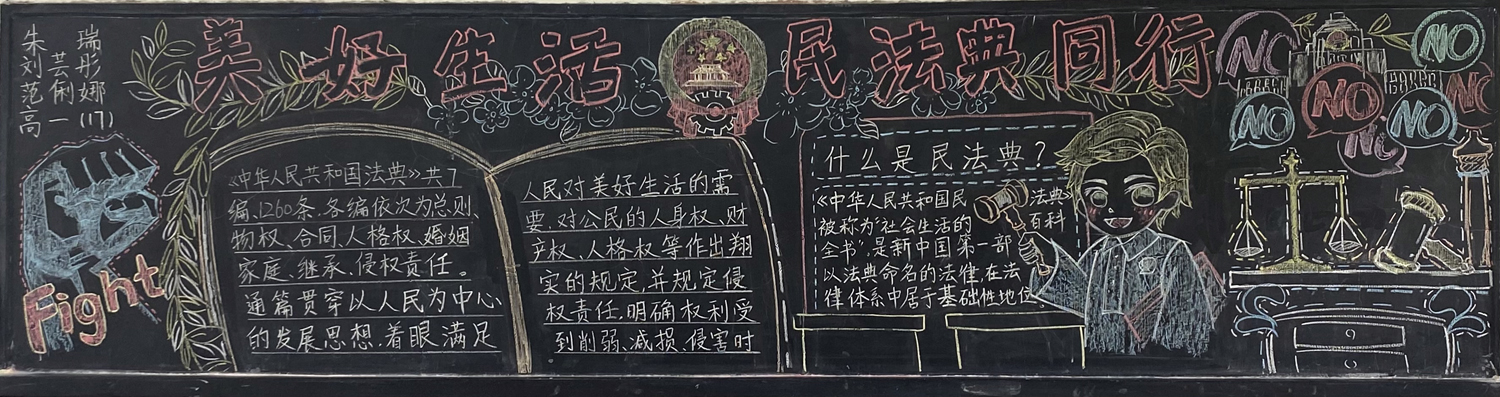 朱瑞
刘芸彤
范俐娜
高一(17)
美好生活 民法典同行
Fight
《中华人民共和国法典》共7
编、1260条.各编依次为总则、
物权、合同、人格权、婚姻
家庭、继承、侵权责任。
通篇贯穿以人民为中心
的发展思想.着眼满足
人民对美好生活的需
要.对公民的人身权、财
产权、人格权等作出翔
实的规定,并规定侵
权责任.明确权利受
到削弱、减损、侵害时
什么是民法典?
《中华人民共和国民法典》
被称为"社会生活的百科
全书",是新中国第一部
以法典命名的法律,在法
律体系中居于基础性地位
NO
NO
NO
NO
NO
NO
NO